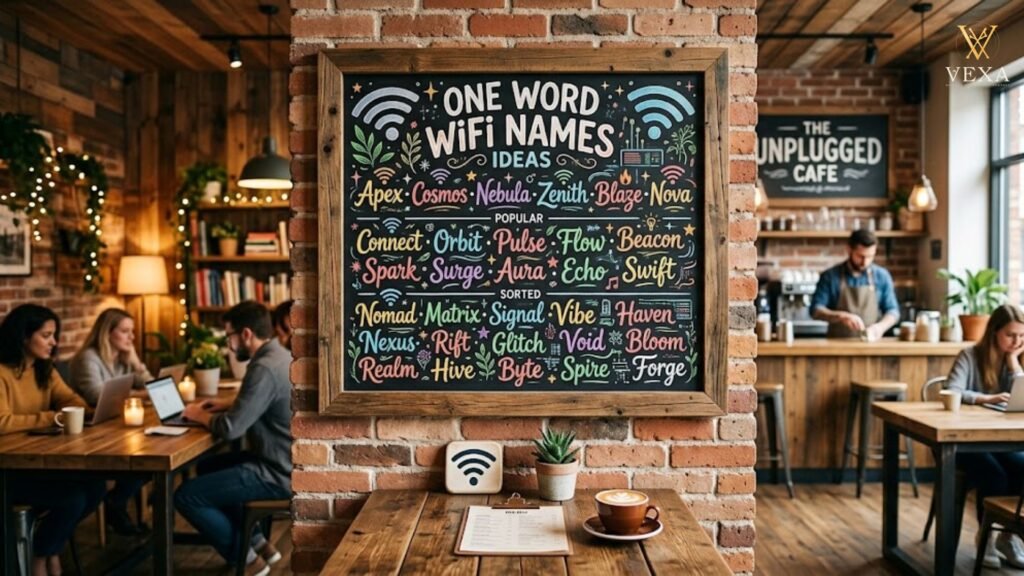 ONE WORD
WiFi NAMES
IDEAS
Apex Cosmos Nebula Zenith Blaze Nova
POPULAR
Connect Orbit Pulse Flow Beacon
Spark Surge Aura Echo Swift
SORTED
Nomad Matrix Signal Vibe Haven
Nexus Rift Glitch Void Bloom
Realm Hive Byte Spire Forge
THE
UNPLUGGED
CAFE
VEXA
MENU